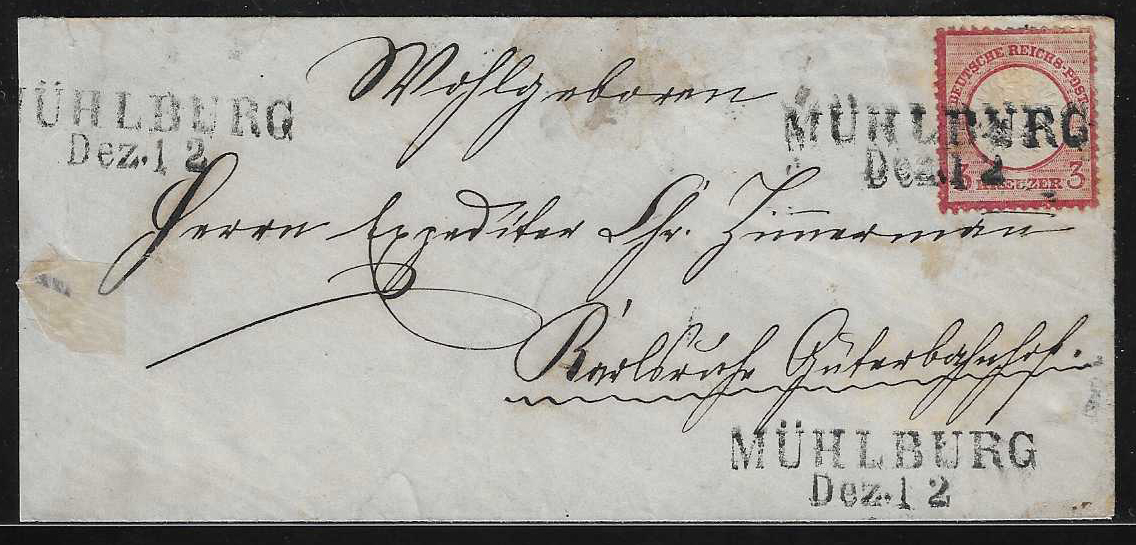 DEUTSCHE REICHS-POST
3 KREUZER 3
MÜHLBURG
Dez. 1 2
MÜHLBURG
Dez. 1 2
Wohlgeboren
Herrn Expeditor Chr. Zimmermann
Karlsruhe Güterbahnhof.
MÜHLBURG
Dez. 1 2